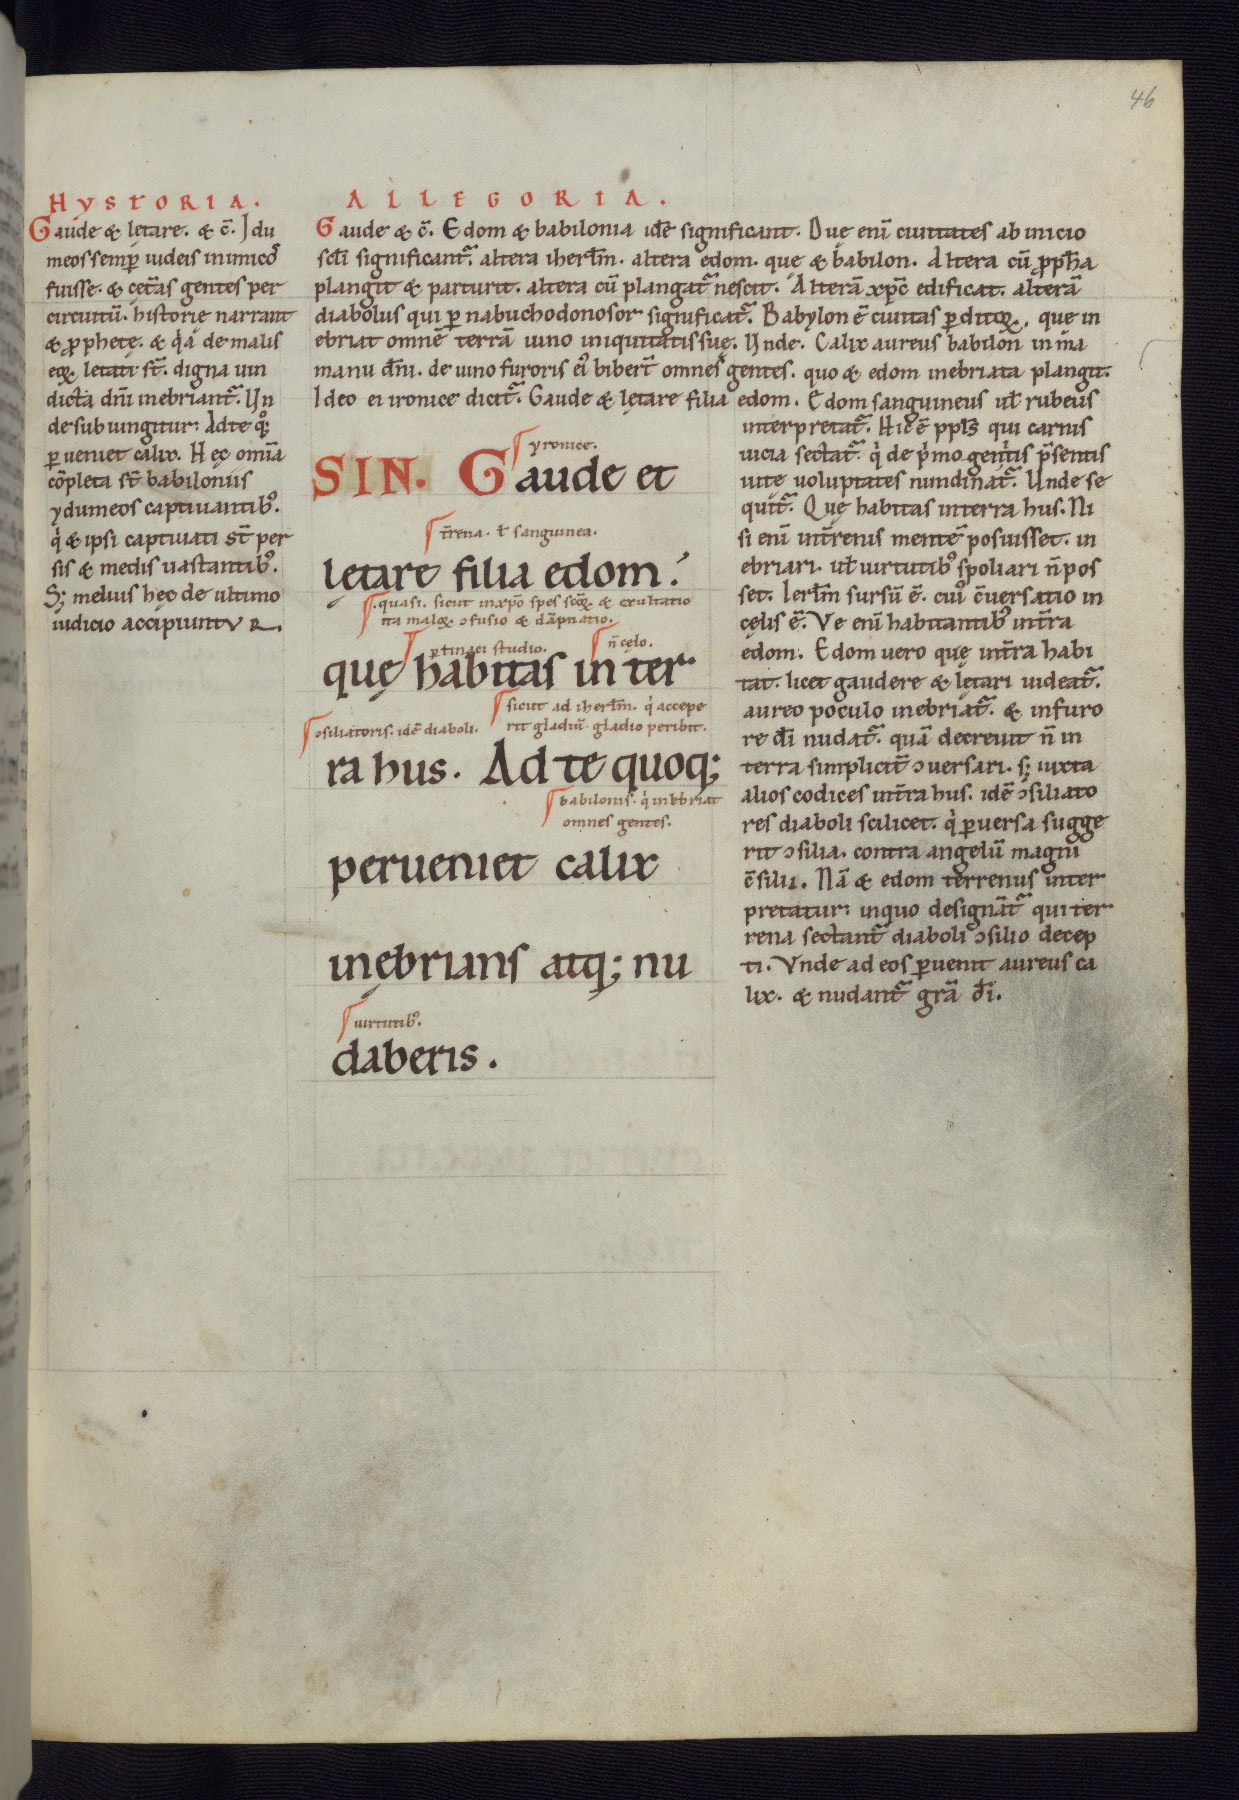 46
HYSTORIA.
Gaude & lętare. & c̄. Idu
meos semꝑ iudeis inimicos
fuisse. & cęt̄as gentes per
circuitū. historię narrant
& ꝓphetę. & q̇a de malis
eoꝝ letati st̄. digna uin
dicta dn̄i inebriant᷑. Un
de subiungitur: Ad te q°;
ꝑueniet calix. Hęc om̄ia
cōpleta st̄ babiloniis
ydumeos captiuantibꝰ.
q̇ & ipsi captiuati st̄ per
sis & medis uastantibꝰ.
S; melius hęc de ultimo
iudicio accipiuntur.
ALLEGORIA.
Gaude & c̄. Edom & babilonia idē significant. Duę enī ciuitates ab inicio
scl̄i significant᷑. altera iherl̄m. altera edom. que & babilon. Altera cū ꝓph̄a
plangit & parturit. altera cū plangat᷑ nescit. Alterā xp̄c edificat. alterā
diabolus qui ꝑ nabuchodonosor significat᷑. Babylon ē ciuitas ꝑditoꝝ. quę in
ebriat omnē terrā uino iniquitatis suę. Unde. Calix aureus babilon in ma
manu dn̄i. de uino furoris eiꝰ bibert̄ omnes gentes. quo & edom inebriata plangit.
Ideo ei ironice dicit᷑. Gaude & lętare filia edom. Edom sanguineus ul̄ rubeus
interpretat᷑. Hic ē ppl̄s qui carnis
uicia sectat᷑. q̇ de p̄mo gentis p̄sentis
uite uoluptates nundinat᷑. Unde se
quit᷑. Quę habitas in terra hus. Ni
si enī int̄renis mentē posuisset. in
ebriari. ul̄ uirtutibꝰ spoliari n̄ pos
set. Ierl̄m sursū ē. cuiꝰ c̄uersatio in
cęlis ē. Ve enī habitantibꝰ int̄ra
edom. Edom uero quę int̄ra habi
tat. licet gaudere & lętari uideat᷑.
aureo poculo inebriat᷑. & in furo
re dī nudat᷑. quā decreuit n̄ in
terra simplicit̄ ↄuersari. s; iuxta
alios codices int̄ra hus. idē ↄsiliato
res diaboli scilicet. q̇ ꝑuersa sugge
rit ↄsilia. contra angelū magni
c̄silii. Nā & edom terrenus inter
pretatur: in quo designāt᷑ qui ter
rena sectant᷑ diaboli ↄsilio decep
ti. Vnde ad eos ꝑuenit aureus ca
lix. & nudant᷑ gr̄a dī.
yronice.
SIN. Gaude et
t̄rena. ł sanguinea.
lętare filia edom.
quasi. sicut in xp̄o spes scōꝝ & exultatio
ita maloꝝ ↄfusio & dāpnatio.
ꝑtinaci studio. n̄ celo.
quę habitas in ter
sicut ad iherl̄m. q̇ accepe
ↄsiliatoris. idē diaboli. rit gladiū. gladio peribit.
ra hus. Ad te quoq;
babilonis. q̇ inebriat
omnes gentes.
perueniet calix
inębrians atq; nu
uirtutibꝰ.
daberis.